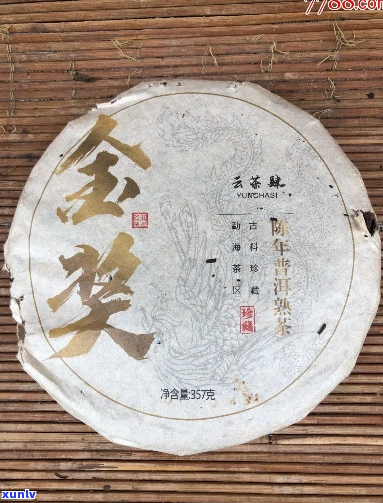 7788.com
金奖
云茶肆
YUNCHASI
陈年普洱熟茶
古料珍藏
勐海茶区
珍藏
净含量:357克
xunlv